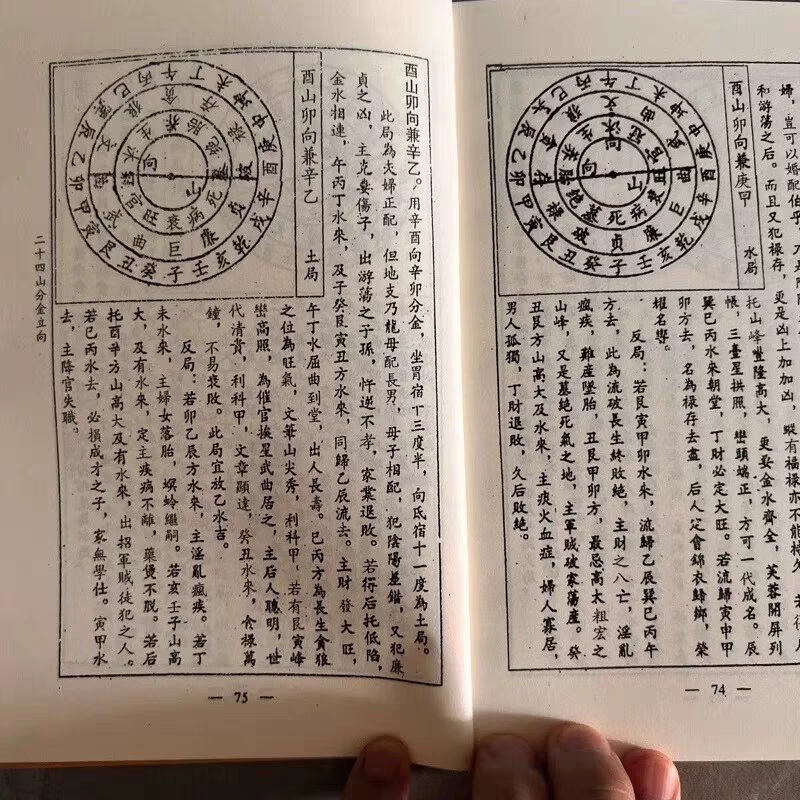 婦，豈可以婚配伯乎，乃是
和游蕩之后。而且又犯祿存，更是凶上加凶，縱有福祿亦不能
酉山卯向兼庚甲
水局
托山峰豐隆高大，更娶金水齊全，芙蓉開屏列
帳，三臺星拱照，巒頭端正，方可一代成名。辰
巽巳丙水來朝堂，丁財必定大旺。若流歸寅申甲
卯方去，名為祿存去盡，后人定會錦衣歸鄉，榮
名譽。
反局：若艮寅甲卯水來，流歸乙辰巽巳丙午
方去，此為流破長生終敗絕，主財之八亡，淫亂
瘋疾，難產墜胎，丑艮甲卯方，最忌高大粗宏之
山峰，又是墓絕死氣之地，主軍賊破家蕩產。癸
丑艮方山高大及水來，主痰火血症，婦人寡居，
男人孤獨，丁財退敗，久后敗絕。
午丁未坤申庚酉辛戌乾亥壬子癸丑艮寅甲卯乙辰巽巳丙
文曲 廉貞破祿
病死墓絕胎養生沐冠
向
向
山
— 74 —
酉山卯向兼辛乙。用辛酉向辛卯分金，坐胃宿丅三度半，向氐宿十一度為土局。
此局為夫婦正配，但地支乃龍母配長男，母子相配，犯陰陽差錯，又犯廉
貞之凶，主克妻傷子，出游蕩之子孫，忤逆不孝，家業退敗。若得后托低陷，
金水相連，午丙丁水來，及子癸艮寅丑方水來，同歸乙辰流去。主財發大旺，
酉山卯向兼辛乙
土局
午丁水屈曲到堂，出人長壽。巳丙方為長生貪狼
之位為旺氣，文筆山尖秀，利科甲，若有艮寅峰
巒高照，為催官挨星武曲居之，主后人聰明，世
代清貴，利科甲，文章顯達，癸丑水來，食祿萬
鐘，不易衰敗。此局宜放乙水吉。
反局：若卯乙辰方水來，主淫亂瘋疾。若丁
未水來，主婦女落胎，螟蛉繼嗣。若亥壬子山高
大，及有水來，定主疾病不離，藥煲不脫。若后
托酉辛方山高大及有水來，出招軍賊徒犯之人。
若巳丙水去，必損成才之子，家無學仕。寅甲水
去，主降官失職。
午丁未坤申庚酉辛戌乾亥壬子癸丑艮寅甲卯乙辰巽巳丙
貪狼 破 廉貞巨曲武文祿存
胎絕墓死病衰旺官冠沐生養
向
山
二十四山分金立向
— 75 —